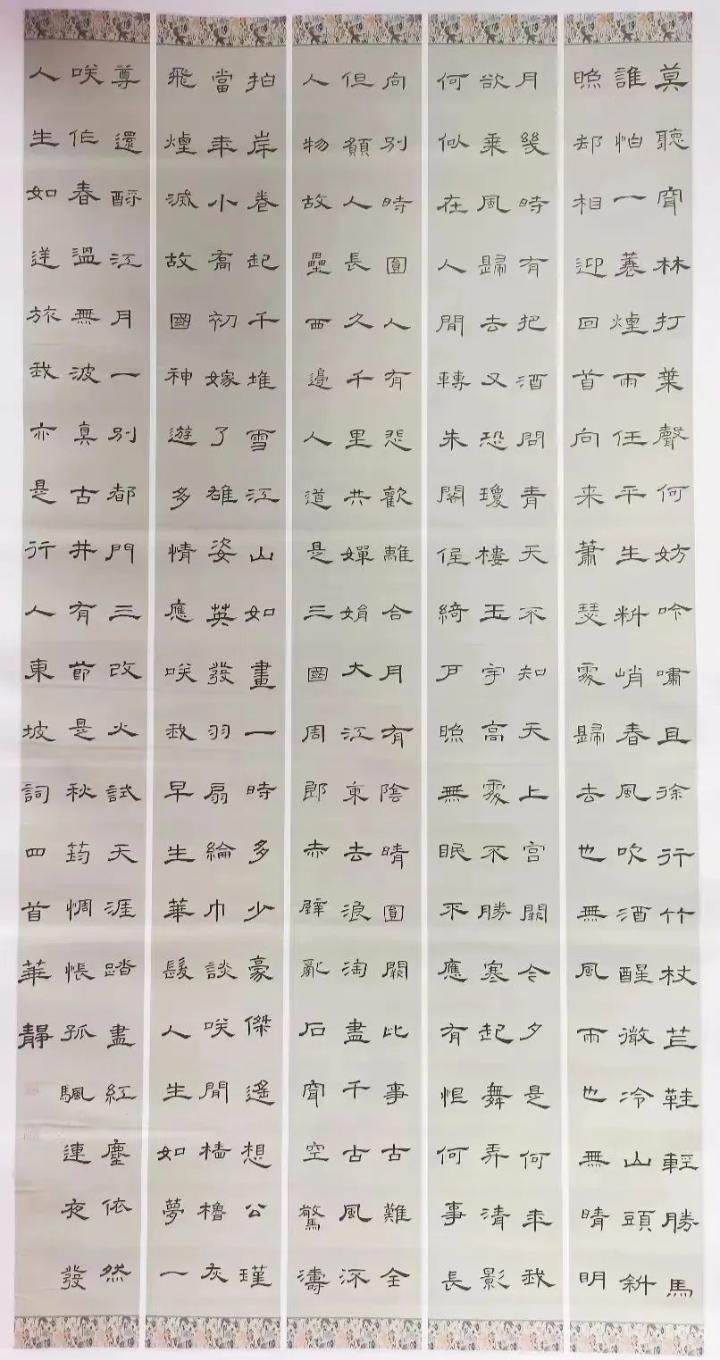 莫聽穿林打葉聲何妨吟嘯且徐行竹杖芒鞋輕勝馬
誰怕一蓑煙雨任平生料峭春風吹酒醒微冷山頭斜
照却相迎回首向來蕭瑟處歸去也無風雨也無晴明
月幾時有把酒問青天不知天上宮闕今夕是何年我
欲乘風歸去又恐瓊樓玉宇高處不勝寒起舞弄清影
何似在人間轉朱閣低綺戶照無眠不應有恨何事長
向別時圓人有悲歡離合月有陰晴圓闕此事古難全
但願人長久千里共嬋娟大江東去浪淘盡千古風流
人物故壘西邊人道是三國周郎赤壁亂石穿空驚濤
拍岸卷起千堆雪江山如畫一時多少豪傑遙想公瑾
當年小喬初嫁了雄姿英發羽扇綸巾談咲間檣櫓灰
飛煙滅故國神遊多情應咲我早生華髮人生如夢一
尊還酹江月一別都門三改火試天涯踏盡紅塵依然
咲作春溫無波真古井有節是秋筠惆悵孤颿連夜發
人生如逆旅我亦是行人東坡詞四首華靜